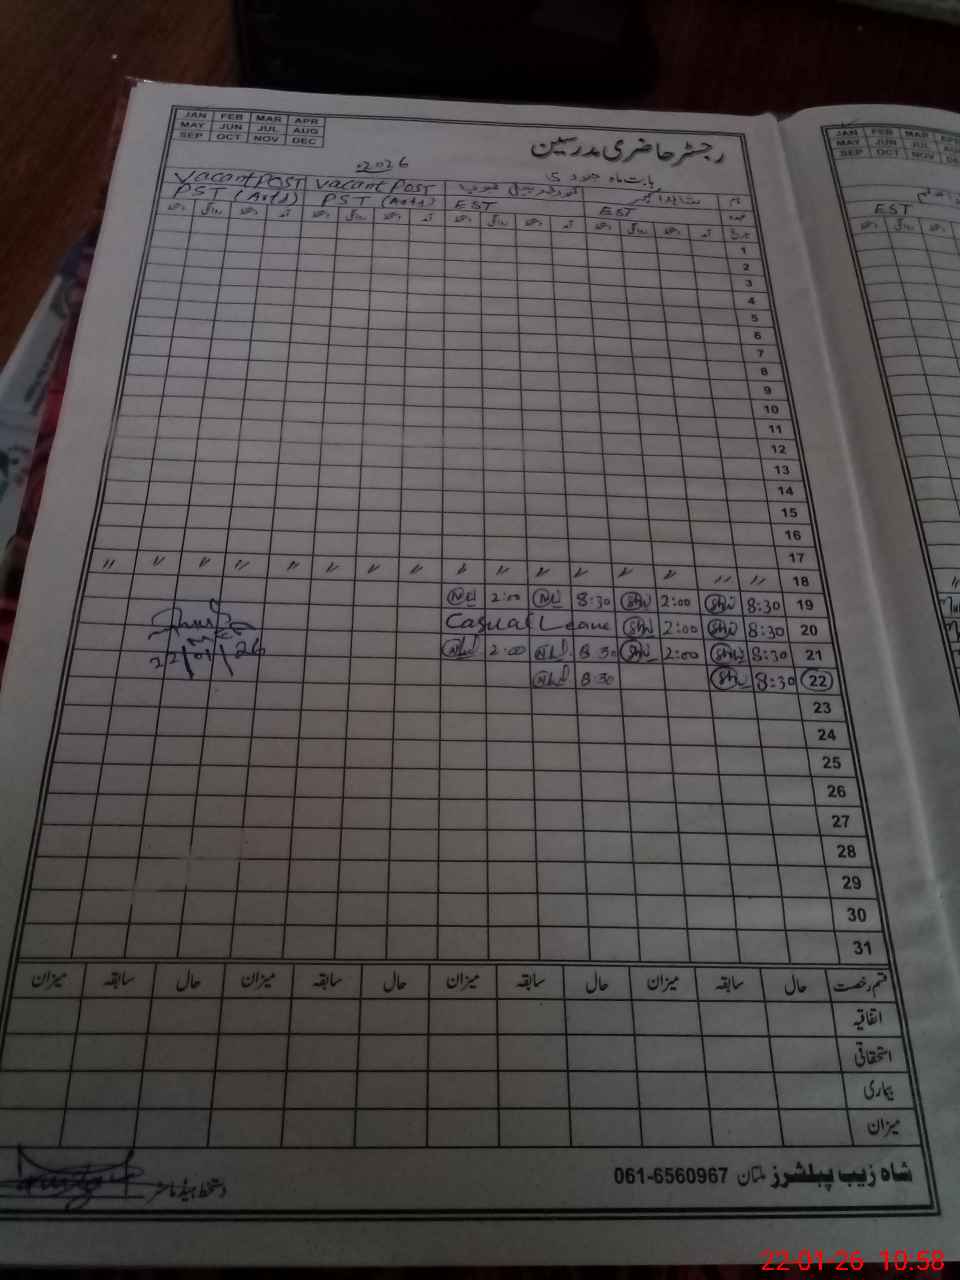 JAN FEB MAR APR
MAY JUN JUL AUG
SEP OCT NOV DEC
رجسٹر حاضری مدرسین
بابت ماہ جنوری 2026
نام vacant POST vacant POST
عہدہ EST EST PST (Arts) PST (Arts)
تاریخ آمد دستخط روانگی دستخط آمد دستخط روانگی دستخط آمد دستخط روانگی دستخط آمد دستخط روانگی دستخط
1
2
3
4
5
6
7
8
9
10
11
12
13
14
15
16
17
18 〃 〃 〃 〃 〃 〃 〃 〃 〃 〃 〃 〃 〃 〃 〃 〃
19 8:30 2:00 8:30 2:00
20 8:30 2:00 Casual Leave
21 8:30 2:00 8:30 2:00
22 8:30 8:30
22/01/26
23
24
25
26
27
28
29
30
31
قسم رخصت حال سابقہ میزان حال سابقہ میزان حال سابقہ میزان حال سابقہ میزان
اتفاقیہ
استحقاقی
بیماری
میزان
شاہ زیب پبلشرز ملتان 061-6560967 دستخط ہیڈ ماسٹر
JAN FEB MAR
MAY JUN JUL
SEP OCT NOV
EST
22-01-26 10:58